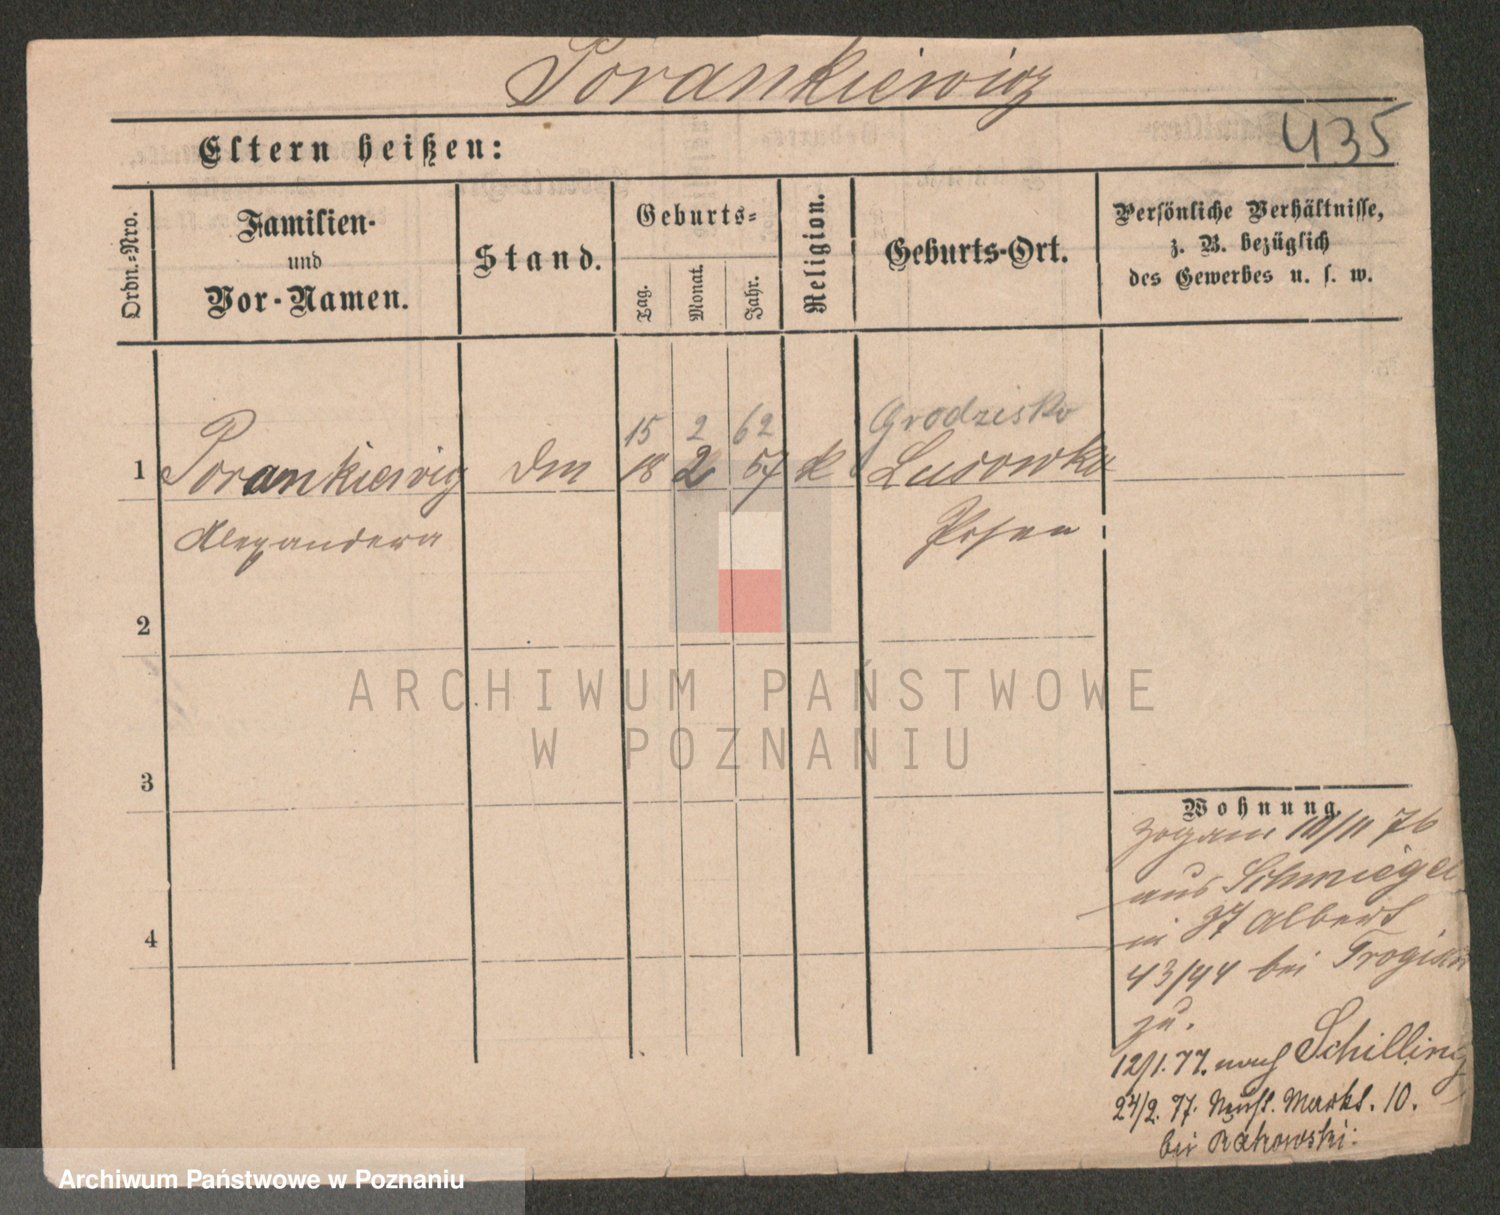 Porankiewicz
435
Eltern heißen:
Ordn.-Nro.
Familien-
und
Vor-Namen.
Stand.
Geburts-
Tag.
Monat.
Jahr.
Religion.
Geburts-Ort.
Persönliche Verhältnisse,
z. B. bezüglich
des Gewerbes u. s. w.
15 2 62 Grodzisko
1 Porankiewicz 18 2 57 k Lussowko
Alexandera Posen
2
3
4
Wohnung.
10/11 76
aus Schmiegel
in 37 Albert
43/44 bei
zu.
12/1. 77. nach Schilling
24/2. 77. Neust. Markt. 10.
bei Rakowski.
ARCHIWUM PAŃSTWOWE
W POZNANIU
Archiwum Państwowe w Poznaniu